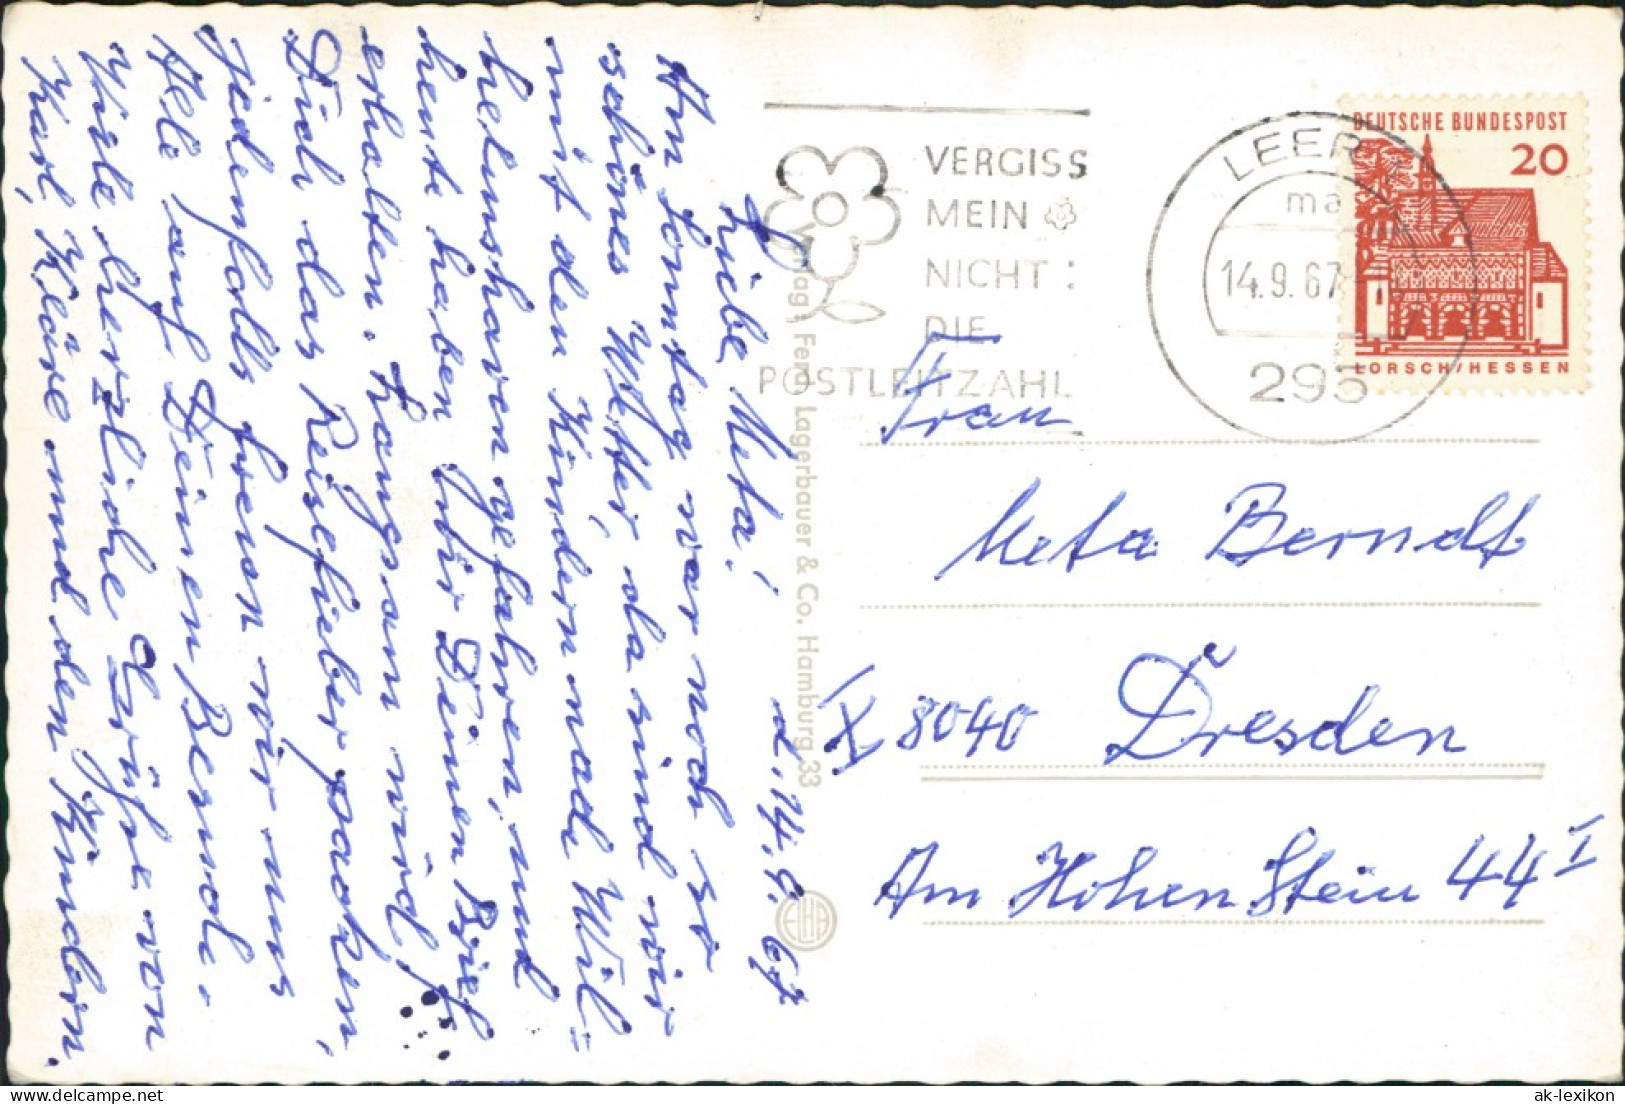 Liebe Meta! d. 14.9.67
Am Sonntag war noch so
schönes Wetter, da sind wir
mit den Kindern nach Wil=
helmshaven gefahren, und
heute haben wir Deinen Brief
erhalten. Langsam wird
Dich das Reisefieber packen,
jedenfalls freuen wir uns
Alle auf Deinen Besuch.
Viele herzliche Grüße von
Karl, Kläre und den Kindern.
Verlag: Ferd. Lagerbauer & Co. Hamburg 33
VERGISS
MEIN
NICHT:
DIE
POSTLEITZAHL
LEER 1
ma
14.9.67
295
DEUTSCHE BUNDESPOST
20
LORSCH/HESSEN
Frau
Meta Berndt
X 8040 Dresden
Am Hohen Stein 44 I
ak-lexikon